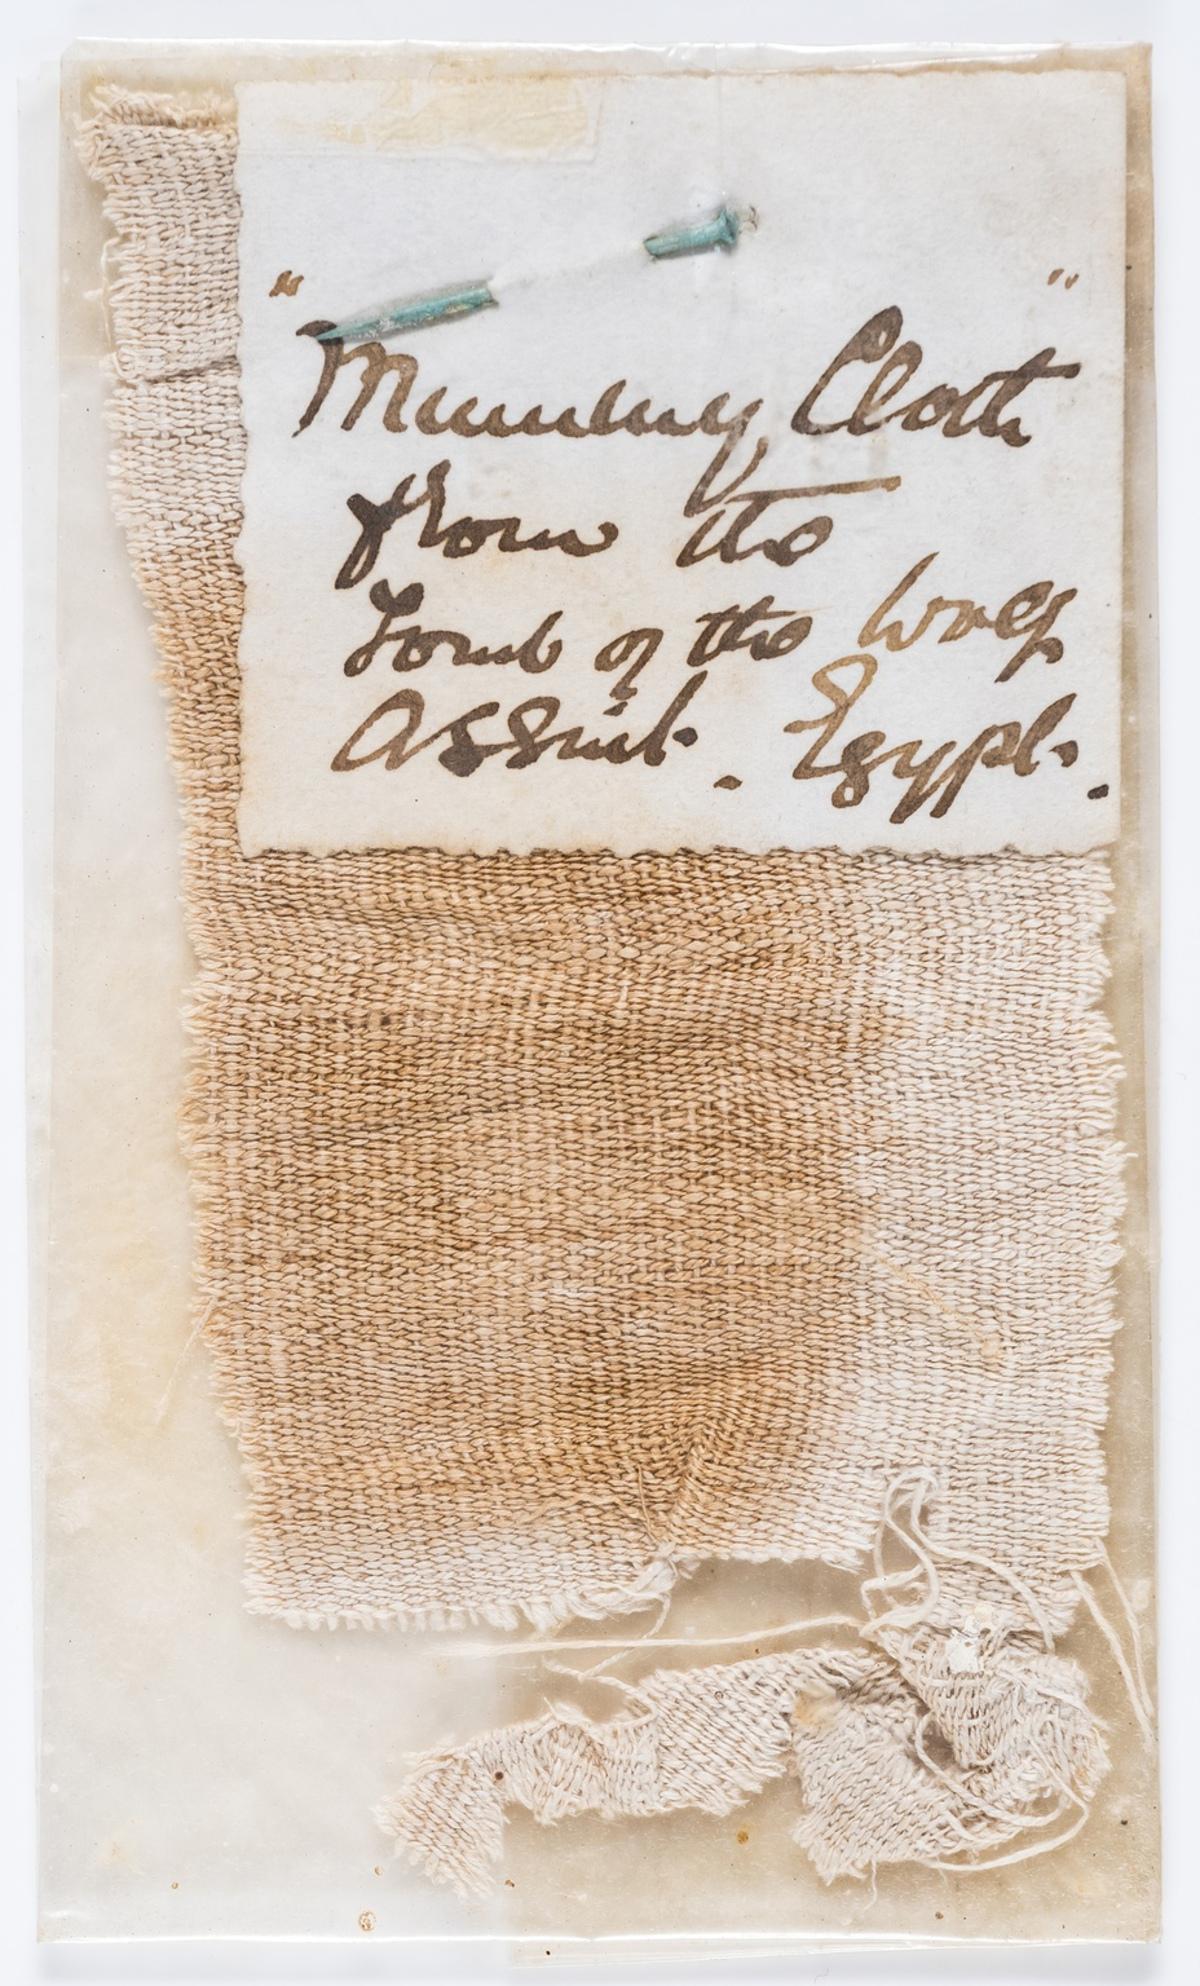 "Mummy Cloth"
from the
Tomb of the Wolf
Assiut. Egypt.